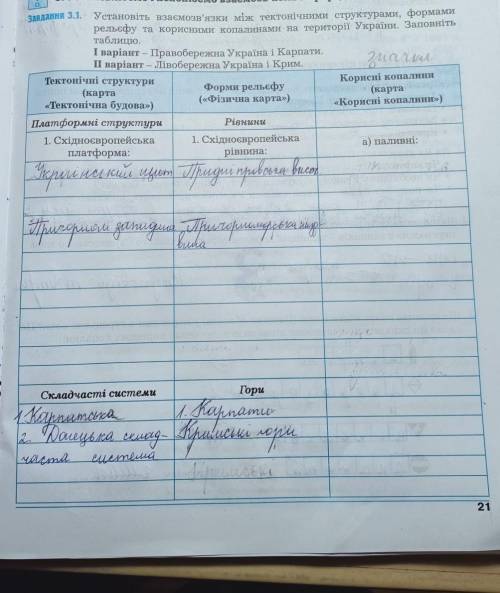 ЗАВДАННЯ 3.1. Установіть взаємозв'язки між тектонічними структурами, формами
рельєфу та корисними копалинами на території України. Заповніть
таблицю.
І варіант – Правобережна Україна і Карпати.
ІІ варіант – Лівобережна Україна і Крим.
Тектонічні структури
(карта
«Тектонічна будова»)
Форми рельєфу
(«Фізична карта»)
Корисні копалини
(карта
«Корисні копалини»)
Платформні структури
Рівнини
1. Східноєвропейська
платформа:
1. Східноєвропейська
рівнина:
а) паливні:
Український щит
Придніпровська височ
Причорном западина
Причорноморська низо-
вина
Складчасті системи
Гори
1. Карпатська
1. Карпати
2. Донецька склад-
Кримські гори
часта система
21